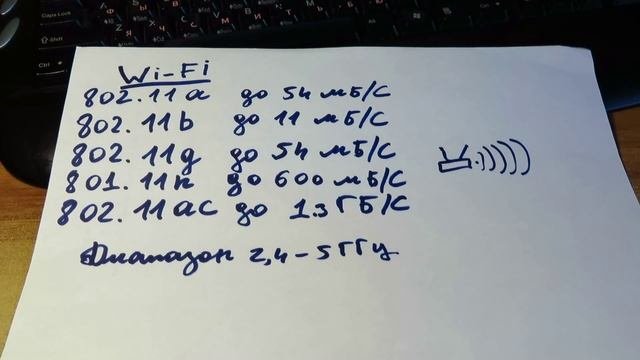 Wi-Fi
802.11a до 54 мБ/С
802.11b до 11 мБ/С
802.11g до 54 мБ/С
801.11n до 600 мБ/С
802.11ac до 1.3 ГБ/С
Диапазон 2,4-5 ГГц